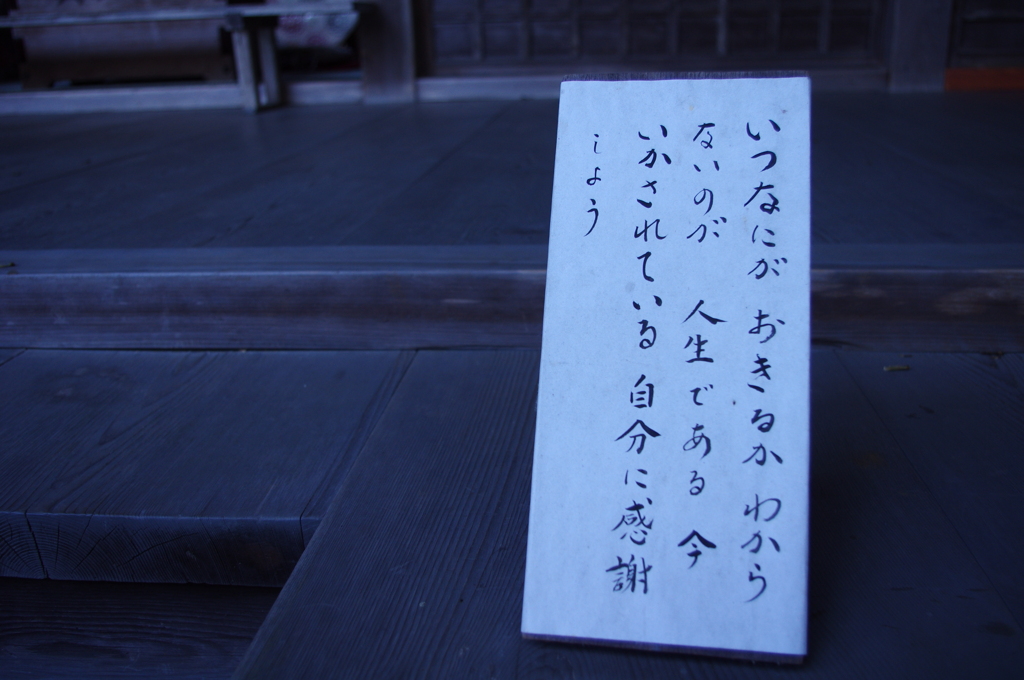 いつなにが おきるか わから
ないのが 人生である 今
いかされている 自分に感謝
しよう